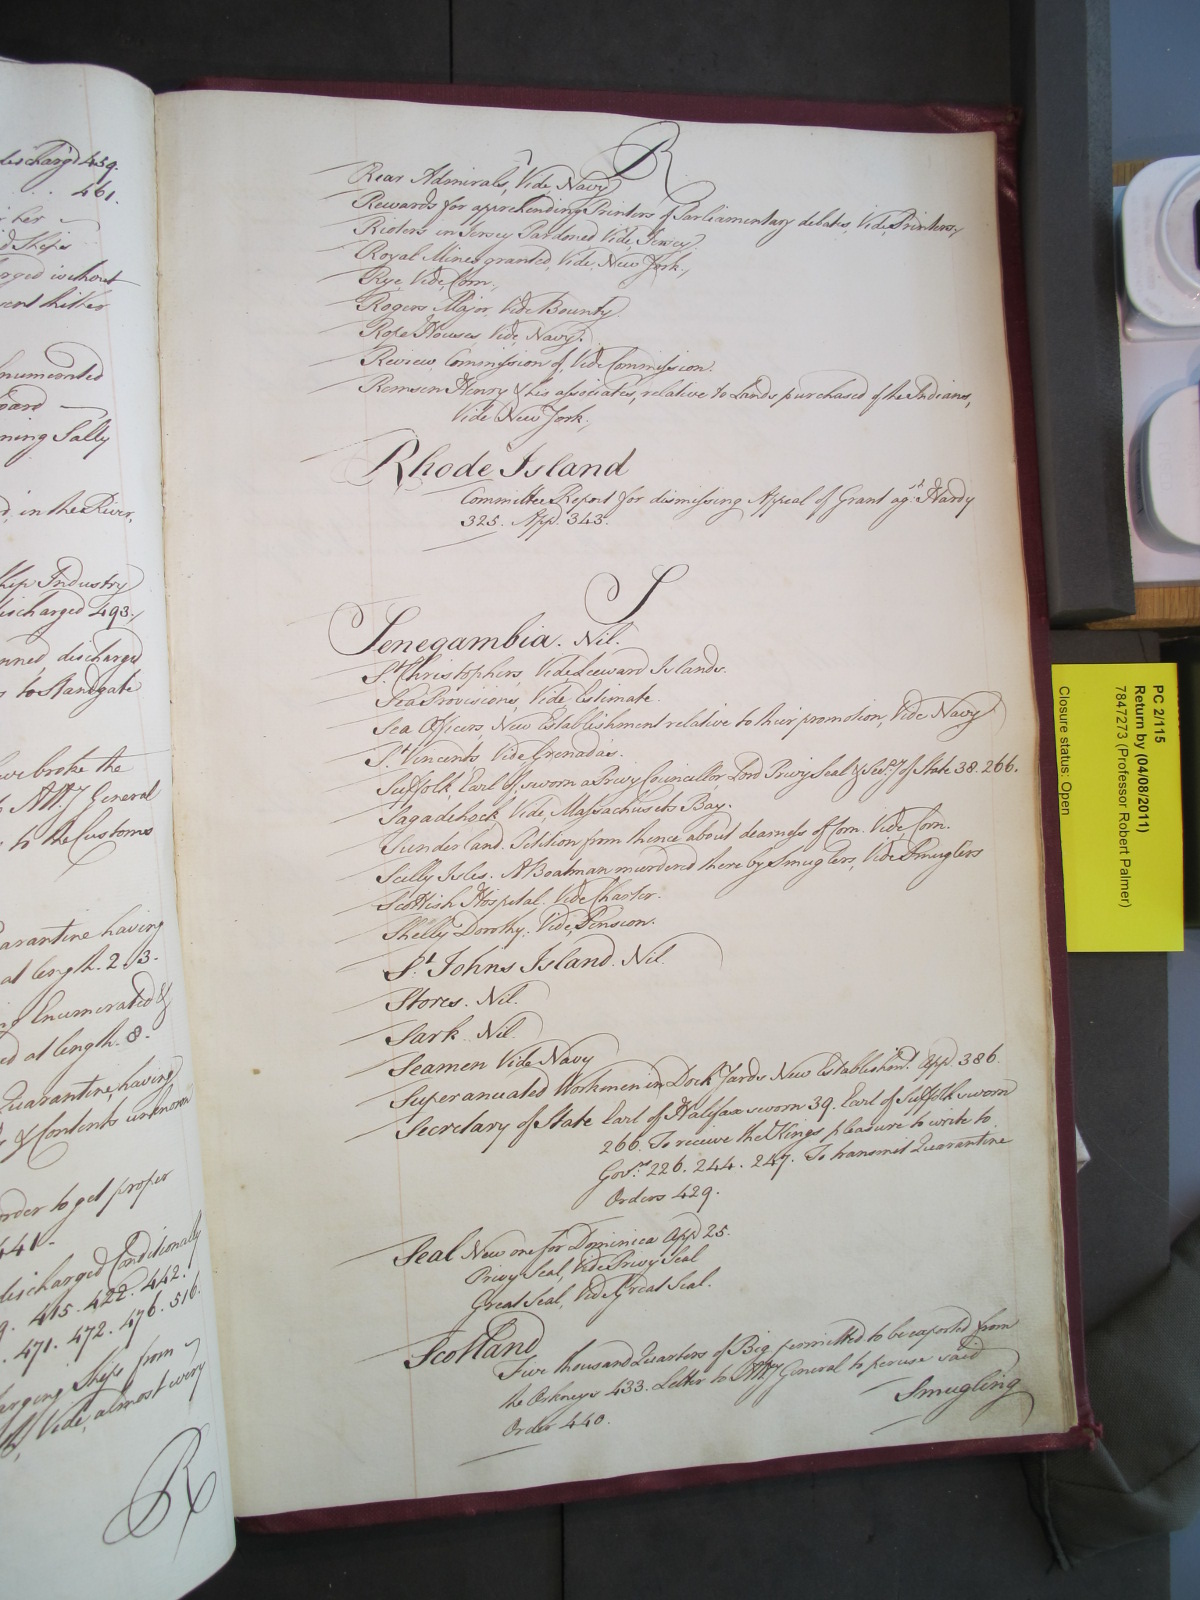 discharg'd 459.
461.
or her
d Ships
arged without
sent thither
numerated
board
ning Sally
d, in the River,
Ship Industry
discharged 493.
nned, discharged
s to Standgate
have broke the
Att'y General
to the Customs
Quarantine having
at length. 2. 3.
ng Enumerated &
ed at length. 8.
Quarantine, having
& Contents unknown
order to get proper
441.
discharged Conditionally
9. 415. 422. 442.
. 471. 472. 476. 516.
arging Ships from
Vide, almost every
R
R
Rear Admirals, Vide, Navy
Rewards for apprehending Printers of Parliamentary debates, Vide, Printers,
Rioters in Jersey Pardoned Vide, Jersey.
Royal Mines granted, Vide, New York,
Rye, Vide, Corn,
Rogers Major, Vide Bounty.
Rope Houses, Vide, Navy.
Review, Commission of, Vide Commission.
Remsen Henry & his associates, relative to Lands purchased of the Indians,
Vide New York,
Rhode Island
Committee Report for dismissing Appeal of Grant agst. Hardy
325. App. 343.
S
Senegambia. Nil.
St. Christophers, Vide Leeward Islands.
Sea Provisions, Vide Estimate.
Sea Officers, New Establishment relative to their promotion, Vide Navy
St. Vincents Vide Grenadas.
Suffolk Earl of, sworn a Privy Councillor, Lord Privy Seal & Secry of State 38. 266.
Sagadehock, Vide, Massachusets Bay.
Sunderland. Petition from thence about dearness of Corn. Vide, Corn.
Scilly Isles. A Boatman murdered there by Smuglers, Vide Smuglers
Scottish Hospital. Vide Charter.
Shelly Dorothy. Vide, Pension.
St. Johns Island. Nil.
Stores. Nil.
Sark. Nil
Seamen Vide Navy
Superanuated Workmen in Dock Yards New Establishent. App. 386.
Secretary of State Earl of Halifax sworn 39. Earl of Suffolk sworn
266. To receive the Kings pleasure to write to
Govrs. 226. 244. 247. To transmit Quarantine
Orders 429.
Seal New one for Dominica App 25.
Privy Seal, Vide Privy Seal
Great Seal, Vide Great Seal.
Scotland
Five thousand Quarters of Big permitted to be exported from
the Orkneys 433. Letter to Atty General to peruse said
Order 440.
Smugling
PC 2/115
Return by (04/08/2011)
7847273 (Professor Robert Palmer)
Closure status: Open